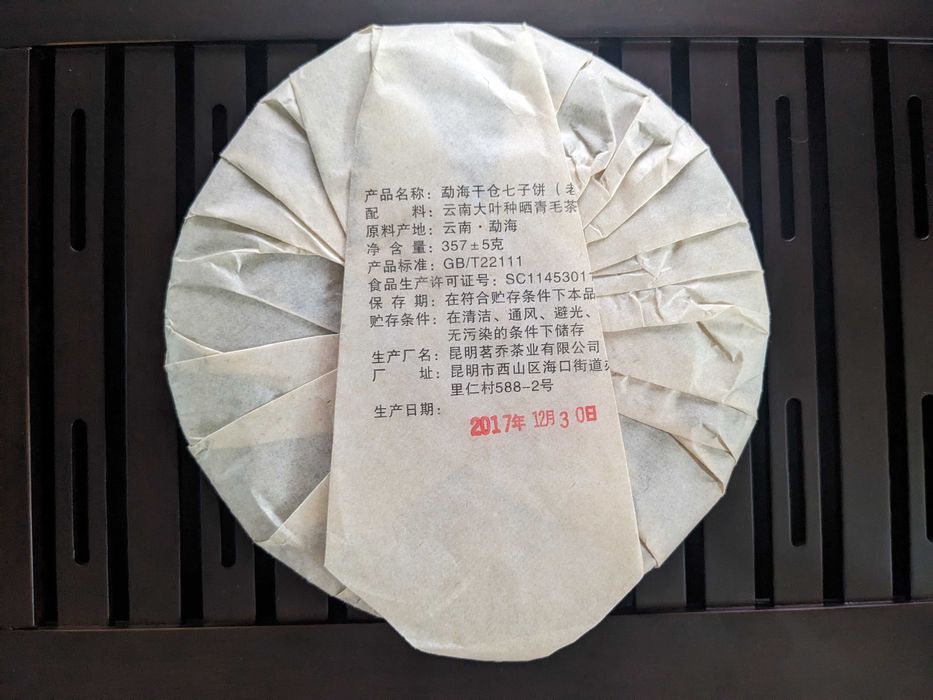 产品名称：勐海干仓七子饼（老
配　　料：云南大叶种晒青毛茶
原料产地：云南·勐海
净 含 量：357±5克
产品标准：GB/T22111
食品生产许可证号：SC1145301
保 存 期：在符合贮存条件下本品
贮存条件：在清洁、通风、避光、
无污染的条件下储存
生产厂名：昆明茗乔茶业有限公司
厂　　址：昆明市西山区海口街道
里仁村588-2号
生产日期：
2017年 12月 30日